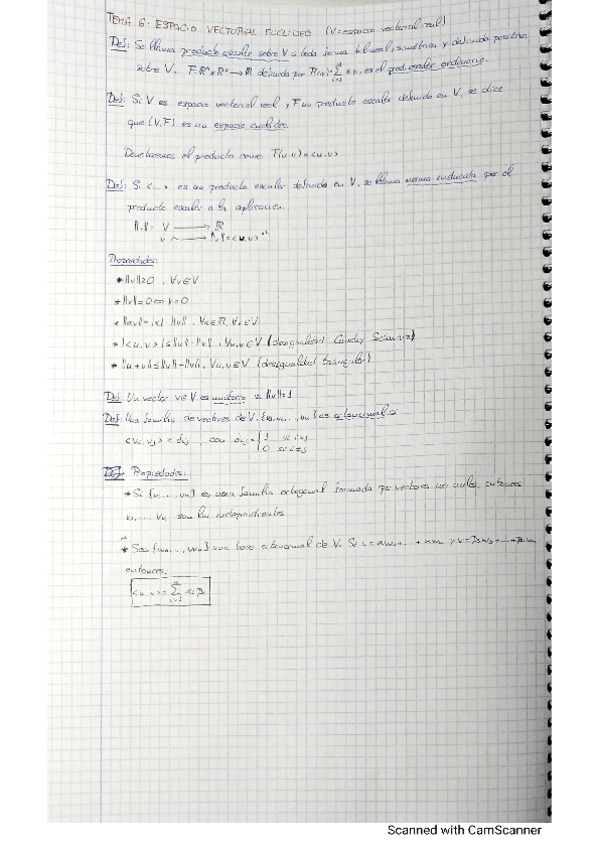 TEMA 6: ESPACIO VECTORIAL EUCLIDEO (V=espacio vectorial real)
Def: Se llama producto escalar sobre V a toda forma bilineal, simétrica y definida positiva
sobre V. F: Rⁿ×Rⁿ→R definida por F(u,v)=∑ xᵢyᵢ, es el prod. escalar ordinario.
Def: Si V es espacio vectorial real y F un producto escalar definido en V, se dice
que (V,F) es un espacio euclídeo.
Denotaremos el producto como F(u,v)=<u,v>
Def: Si <.,.> es un producto escalar definido en V, se llama norma inducida por el
producto escalar a la aplicación.
‖.‖: V → R
Propiedades:
* ‖v‖≥0, ∀v∈V
* ‖v‖=0 ⇔ v=0
* ‖αv‖=|α| ‖v‖, ∀α∈R, ∀v∈V
* |<u,v>|≤‖u‖·‖v‖, ∀u,v∈V (desigualdad Cauchy
* ‖u+v‖≤‖u‖+‖v‖, ∀u,v∈V (desigualdad triangular)
Def: Un vector v∈V es unitario si ‖v‖=1
Def: Una familia de vectores de V, es ortonormal si
<vᵢ,vⱼ> = δᵢⱼ, con δᵢⱼ = { 1 si i=j
0 si i≠j
Propiedades:
* Si {v₁,...,vₙ} es una familia ortogonal formada por vectores no nulos, entonces
v₁,...,vₙ son lin. independientes
* Sea una base ortonormal de V. Si
entonces,
<u,v>=∑ αᵢβᵢ
Scanned with CamScanner